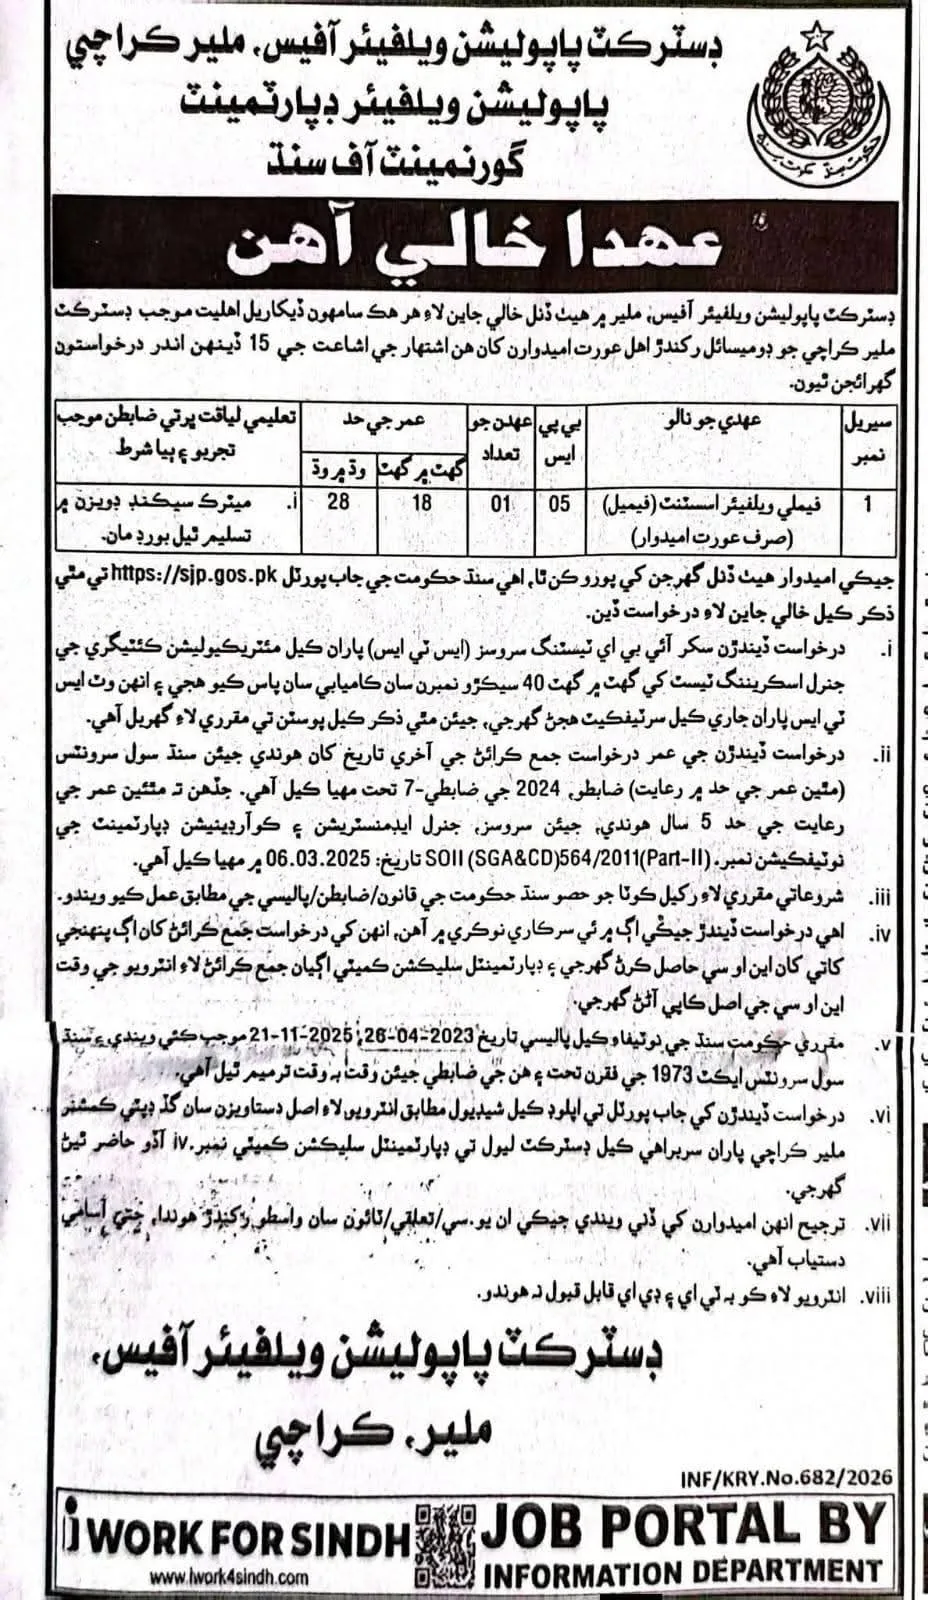 ڊسٽرڪٽ پاپوليشن ويلفيئر آفيس، ملير ڪراچي
پاپوليشن ويلفيئر ڊپارٽمينٽ
گورنمينٽ آف سنڌ
عهدا خالي آهن
ڊسٽرڪٽ پاپوليشن ويلفيئر آفيس، ملير ۾ هيٺ ڏنل خالي جاين لاءِ هر هڪ سامهون ڏيکاريل اهليت موجب ڊسٽرڪٽ
ملير ڪراچي جو ڊوميسائل رکندڙ اهل عورت اميدوارن کان هن اشتهار جي اشاعت جي 15 ڏينهن اندر درخواستون
گهرائجن ٿيون.
سيريل نمبر
عهدي جو نالو
بي پي ايس
عهدن جو تعداد
عمر جي حد
گهٽ ۾ گهٽ
وڌ ۾ وڌ
تعليمي لياقت ڀرتي ضابطن موجب
تجربو ۽ ٻيا شرط
1
فيملي ويلفيئر اسسٽنٽ (فيميل)
(صرف عورت اميدوار)
05
01
18
28
i. ميٽرڪ سيڪنڊ ڊويزن ۾
تسليم ٿيل بورڊ مان.
جيڪي اميدوار هيٺ ڏنل گهرجن کي پورو ڪن ٿا، اهي سنڌ حڪومت جي جاب پورٽل https://sjp.gos.pk تي مٿي
ذڪر ڪيل خالي جاين لاءِ درخواست ڏين.
i. درخواست ڏيندڙن سکر آئي بي اي ٽيسٽنگ سروسز (ايس ٽي ايس) پاران ڪيل مئٽريڪيوليشن ڪئٽيگري جي
جنرل اسڪريننگ ٽيسٽ کي گهٽ ۾ گهٽ 40 سيڪڙو نمبرن سان ڪاميابي سان پاس ڪيو هجي ۽ انهن وٽ ايس
ٽي ايس پاران جاري ڪيل سرٽيفڪيٽ هجڻ گهرجي، جيئن مٿي ذڪر ڪيل پوسٽن تي مقرري لاءِ گهربل آهي.
ii. درخواست ڏيندڙن جي عمر درخواست جمع ڪرائڻ جي آخري تاريخ کان هوندي جيئن سنڌ سول سرونٽس
(مٿين عمر جي حد ۾ رعايت) ضابطو، 2024 جي ضابطي-7 تحت مهيا ڪيل آهي. جڏهن تہ مٿئين عمر جي
رعايت جي حد 5 سال هوندي، جيئن سروسز، جنرل ايڊمنسٽريشن ۽ ڪوآرڊينيشن ڊپارٽمينٽ جي
نوٽيفڪيشن نمبر. SOII (SGA&CD)564/2011(Part-II) تاريخ: 06.03.2025 ۾ مهيا ڪيل آهي.
iii. شروعاتي مقرري لاءِ رکيل ڪوٽا جو حصو سنڌ حڪومت جي قانون/ضابطن/پاليسي جي مطابق عمل ڪيو ويندو.
iv. اهي درخواست ڏيندڙ جيڪي اڳ ۾ ئي سرڪاري نوڪري ۾ آهن، انهن کي درخواست جمع ڪرائڻ کان اڳ پنهنجي
کاتي کان اين او سي حاصل ڪرڻ گهرجي ۽ ڊپارٽمينٽل سليڪشن ڪميٽي اڳيان جمع ڪرائڻ لاءِ انٽرويو جي وقت
اين او سي جي اصل ڪاپي آڻڻ گهرجي.
v. مقرري حڪومت سنڌ جي نوٽيفاءِ ڪيل پاليسي تاريخ 26-04-2023، 21-11-2025 موجب ڪئي ويندي ۽ سنڌ
سول سرونٽس ايڪٽ 1973 جي فقرن تحت ۽ هن جي ضابطي جيئن وقت بہ وقت ترميم ٿيل آهي.
vi. درخواست ڏيندڙن کي جاب پورٽل تي اپلوڊ ڪيل شيڊيول مطابق انٽرويو لاءِ اصل دستاويزن سان گڏ ڊپٽي ڪمشنر
ملير ڪراچي پاران سربراهي ڪيل ڊسٽرڪٽ ليول تي ڊپارٽمينٽل سليڪشن ڪميٽي نمبر.iv آڏو حاضر ٿيڻ
گهرجي.
vii. ترجيح انهن اميدوارن کي ڏني ويندي جيڪي ان يو.سي/تعلقي/ٽائون سان واسطو رکندڙ هوندا، جتي آسامي
دستياب آهي.
viii. انٽرويو لاءِ ڪو بہ ٽي اي ۽ ڊي اي قابل قبول نہ هوندو.
ڊسٽرڪٽ پاپوليشن ويلفيئر آفيس،
ملير، ڪراچي
INF/KRY.No.682/2026
i WORK FOR SINDH
www.iwork4sindh.com
JOB PORTAL BY
INFORMATION DEPARTMENT